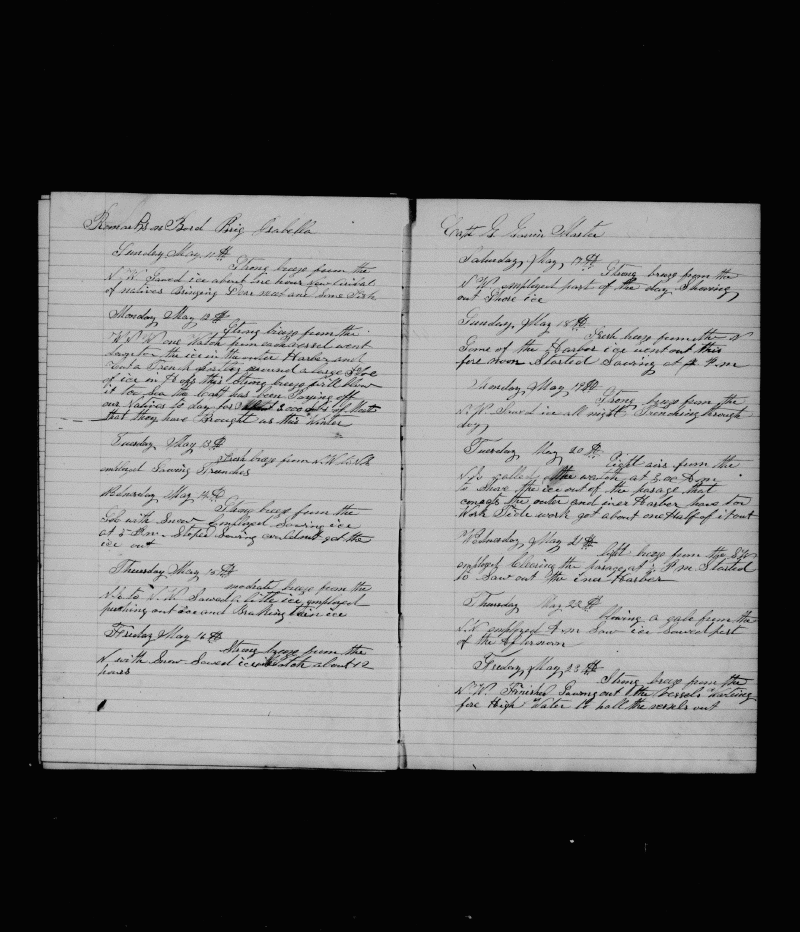 Remarks on Bord Brig Isabella
Sunday May 11th
Strong breeze from the
N.W. Sawed ice about one hour
of natives Bringing Dear meat and Some Fish
Monday May 12th
Strong breeze from the
W N W one Watch from each vessel went
the ice in the outer Harbor and
a Trench around a large
of ice in this Strong breeze
it to sea the has been Paying off
our Natives to day for 3000 lbs of Meate
that they have Brought us this Winter
Tuesday May 13th
Fresh breeze from N.W. to N.
employed Sawing Trenches
Wednesday May 14th
Strong breeze from the
with Snow employed Sawing ice
at 5 P.m. Stoped Sawing could not get the
ice out
Thursday May 15th
moderate breeze from the
N.E. to N.W. Sawed little ice employed
pushing out ice and Braking thin ice
Friday May 16th
Strong breeze from the
N. with Snow Sawed ice watch about 12
hours
Capt Master
Saturday May 17th
Strong breeze from the
N W employed part of the day Shoving
out Shore ice
Sunday May 18th
Fresh breeze from the N
Some of the Harbor ice went out this
fore noon Started Sawing at P.m
Monday May 19th
Strong breeze from the
N.W. Sawed ice all night Trenching through
day
Tuesday May 20th
Light airs from the
called the watch at
to Shove the ice out of the pasage that
the outer and iner Harbor have to
Work Tide work got about one Half of it out
Wednesday May 21th
light breeze from the S W
employed Clearing the pasage at P m Started
to Saw out the iner Harbor
Thursday May 22th
Blowing a gale from the
N.W. employed Saw ice Sawed part
of the afternoon
Friday May 23th
Strong breeze from the
N W. Finished Sawing out the vessels Waiting
fore High Water to hall the vessels out